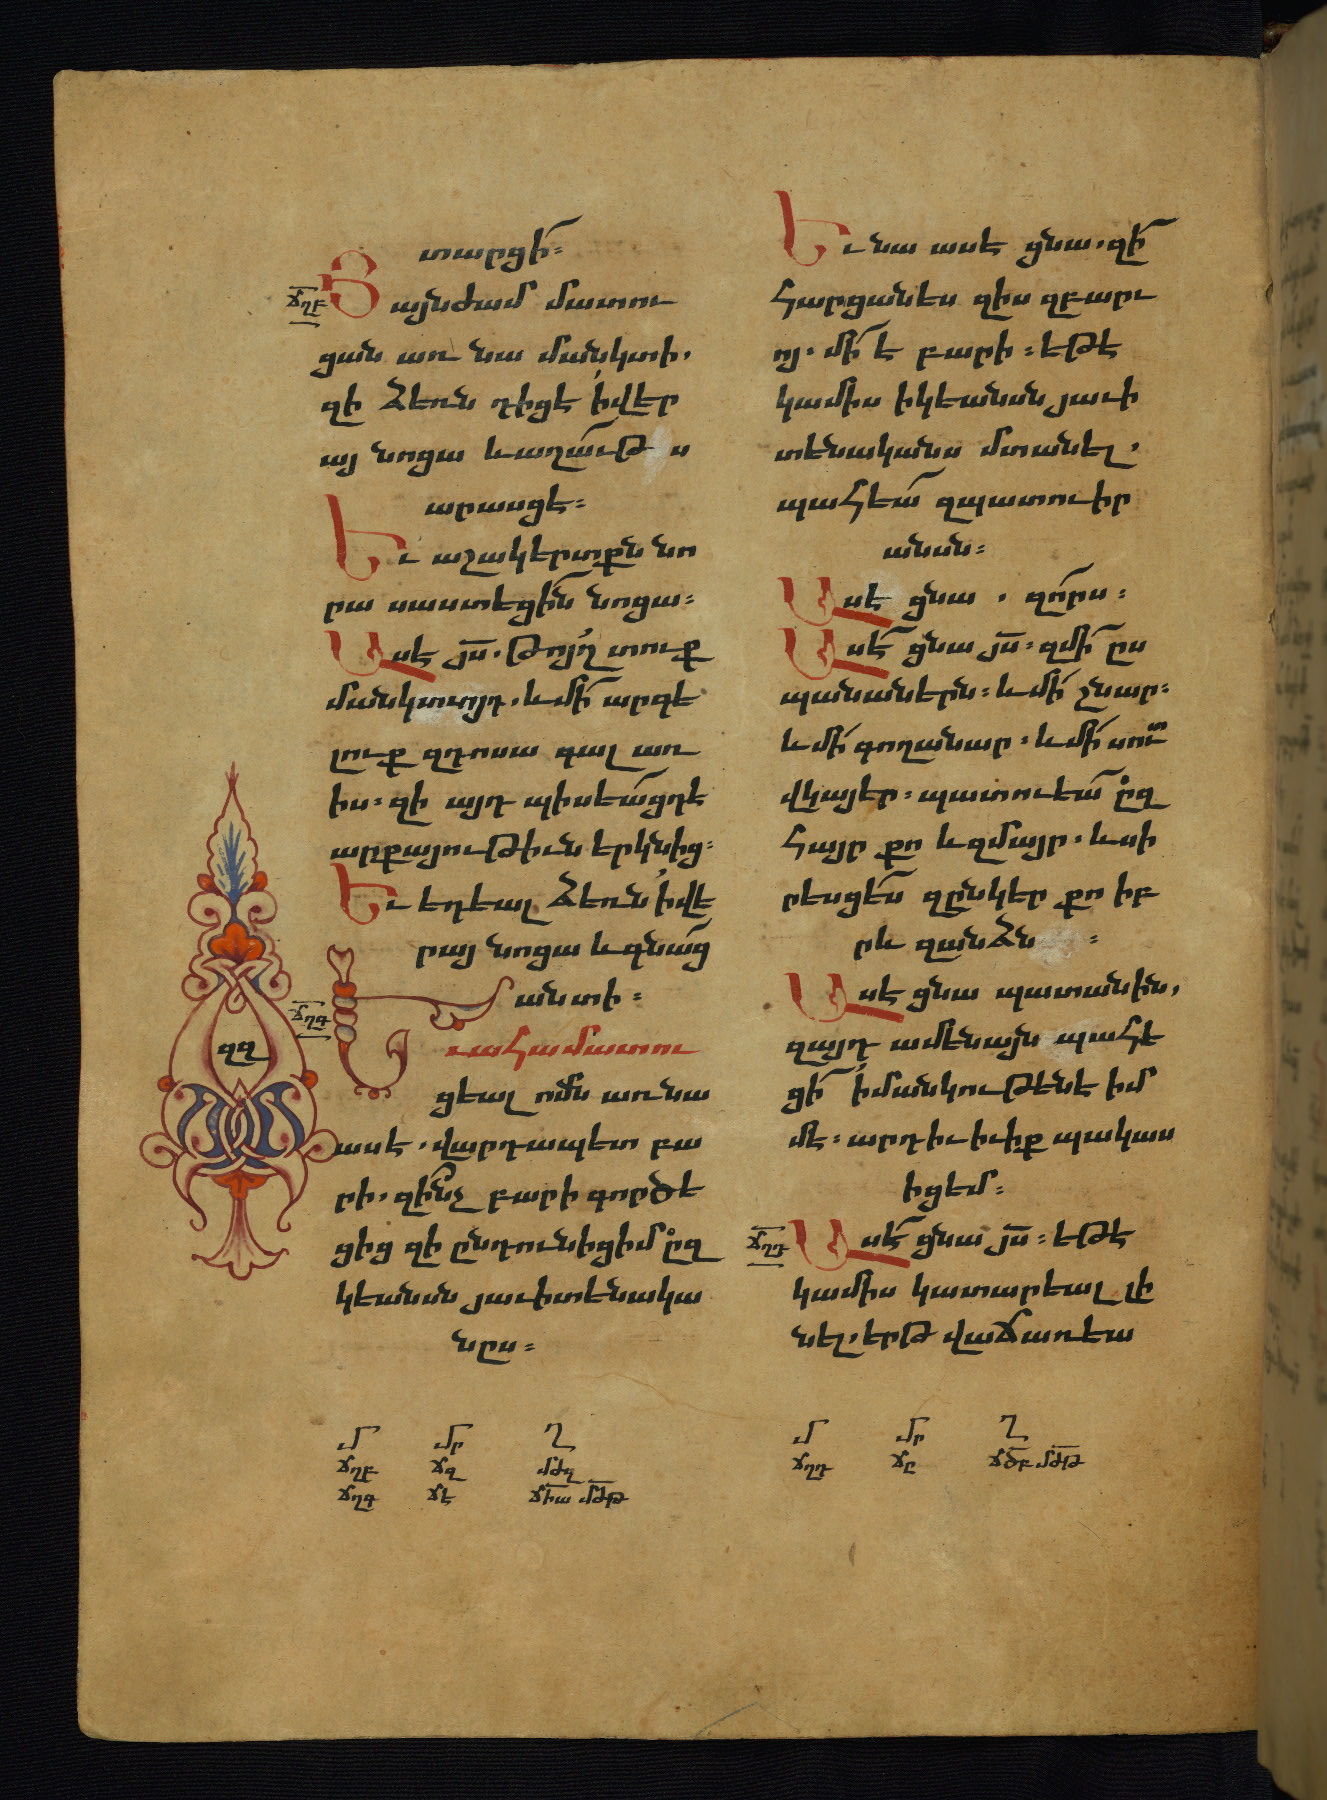 տարցի՜ն։
ՃՂԲ
Յայնժամ մատու
ցան առ նա մանկտի.
զի ձեռն դիցէ ի վեր
այ նոցա և աղաւթս
արասցէ։
Եւ աշակերտքն նո
րա սաստեցին նոցա։
Ասէ յս. թոյլ տուք
մանկտոյդ. և մի արգե
լուք զդոսա գալ առ
իս։ զի այդպիսեացդ է
արքայութիւն երկնից։
Եւ եդեալ ձեռն ի վե
րայ նոցա և գնաց
անտի։
ՃՂԳ
ԶԶ
Եւ ահա մատու
ցեալ ոմն առ նա
ասէ. վարդապետ բա
րի. զինչ բարի գործե
ցից զի ընդունիցիմ ըզ
կեանսն յաւիտենակա
նըս։
Եւ նա ասէ ցնա. զի
հարցանես զիս զբարւ
ոյ. մի է բարի։ եթէ
կամիս ի կեանսն յաւի
տենականս մտանել.
պահեա զպատուիր
անսն։
Ասէ ցնա. զորս։
Ասէ ցնա յս։ զմի ըս
պանաներն։ և մի շնար։
և մի գողանար. և մի սուտ
վկայեր։ պատուեա ըզ
հայր քո և զմայր. և սի
րեսցես զընկեր քո իբ
րև զանձն։
Ասէ ցնա պատանին.
զայդ ամենայն պահե
ցի ի մանկութենէ իմ
մէ։ արդ իւ իւիք պակաս
իցեմ։
ՃՂԴ
Ասէ ցնա յս։ եթէ
կամիս կատարեալ լի
նել. երթ վաճառեա
Մ Մր Ղ
ՃՂԲ ՃԶ ՄԺԶ
ՃՂԳ ՃԷ ՃԻԱ ՄԺԹ
Մ Մր Ղ
ՃՂԴ ՃԸ ՃԾԲ ՄԺԹ